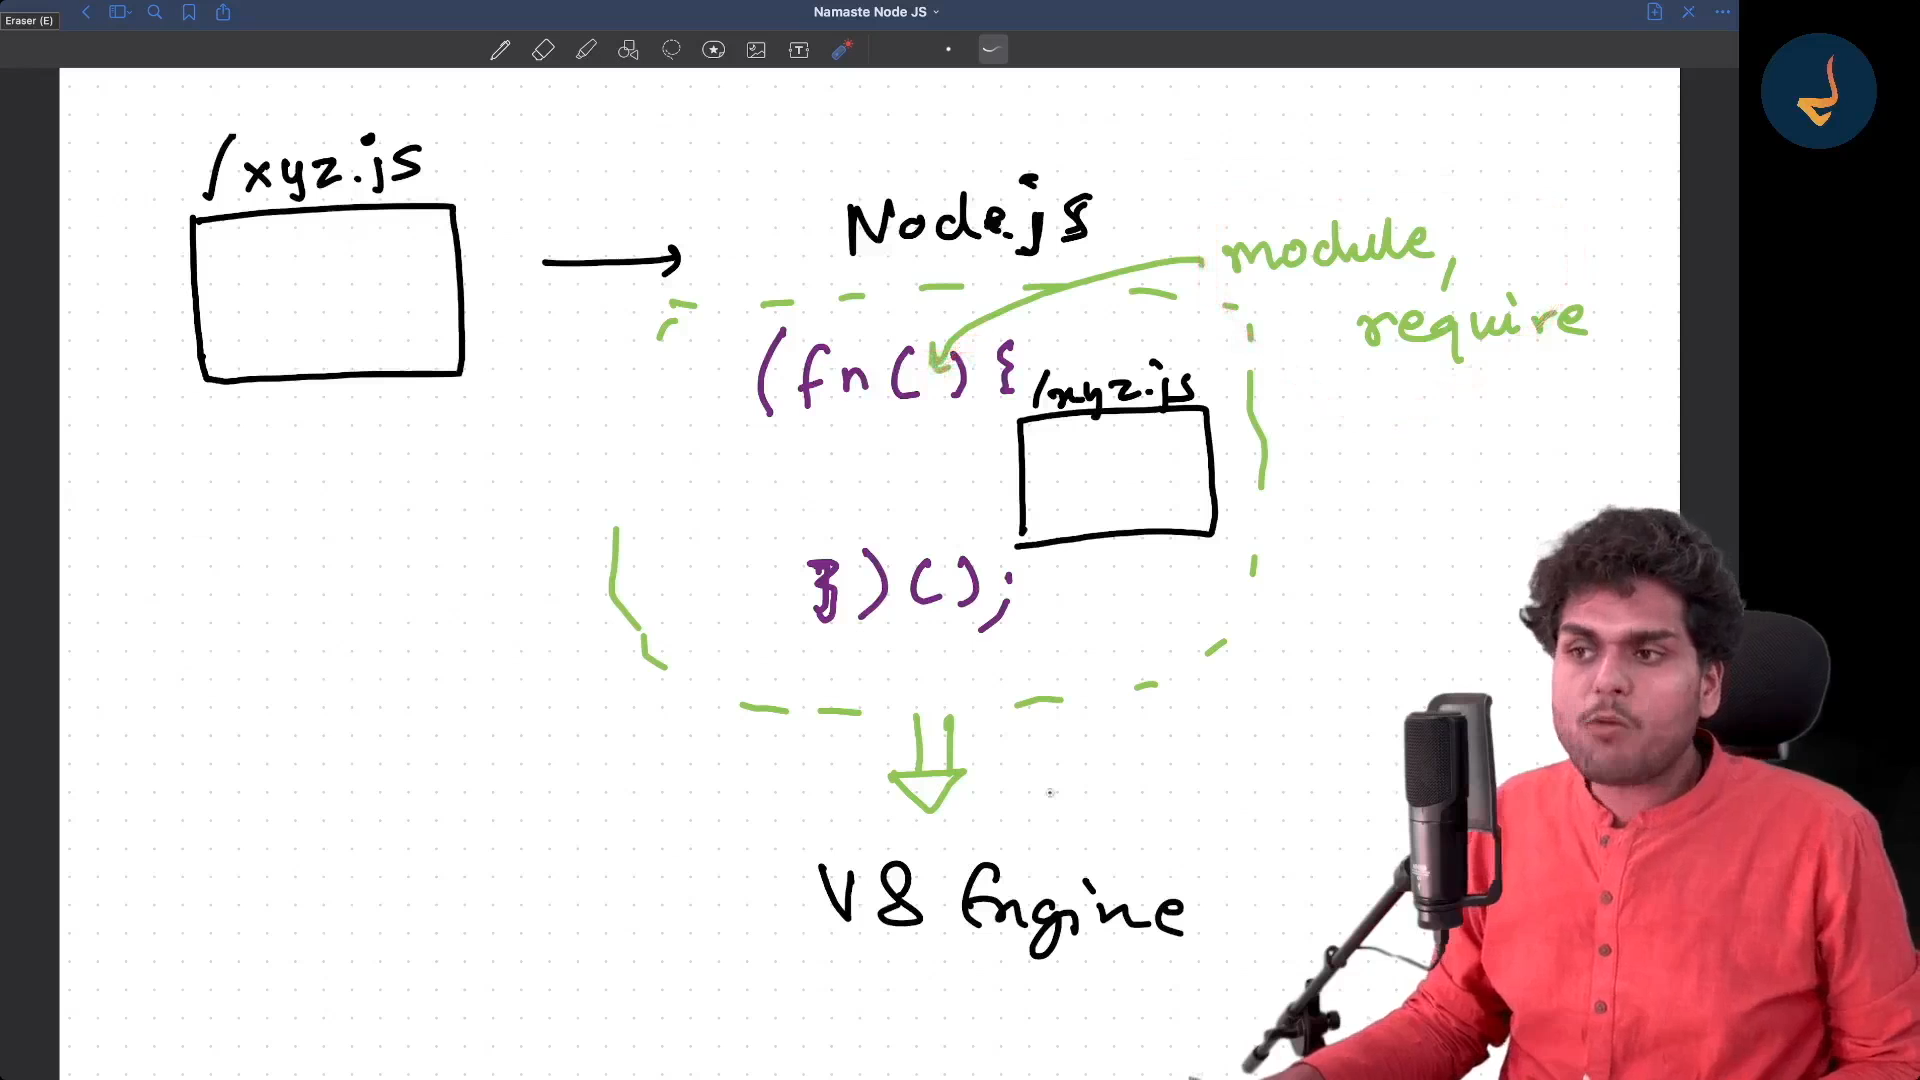 Eraser (E)
Namaste Node JS
/xyz.js
Node.js
module,
require
(fn() {
/xyz.js
})();
V8 Engine